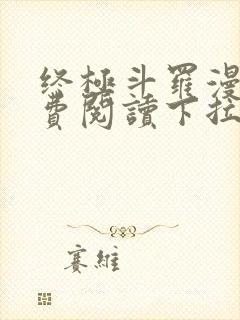 终極斗羅漫
費閱讀下拉
賽維